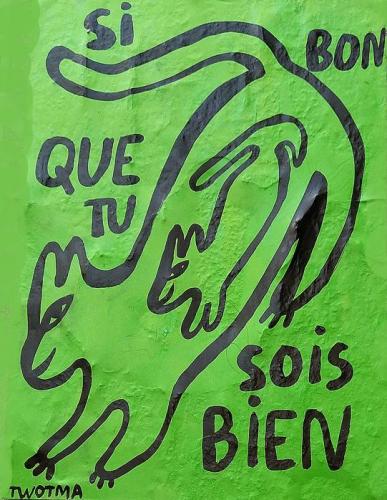 Si BON
QUE
TU
SOiS
BiEN
TWOTMA